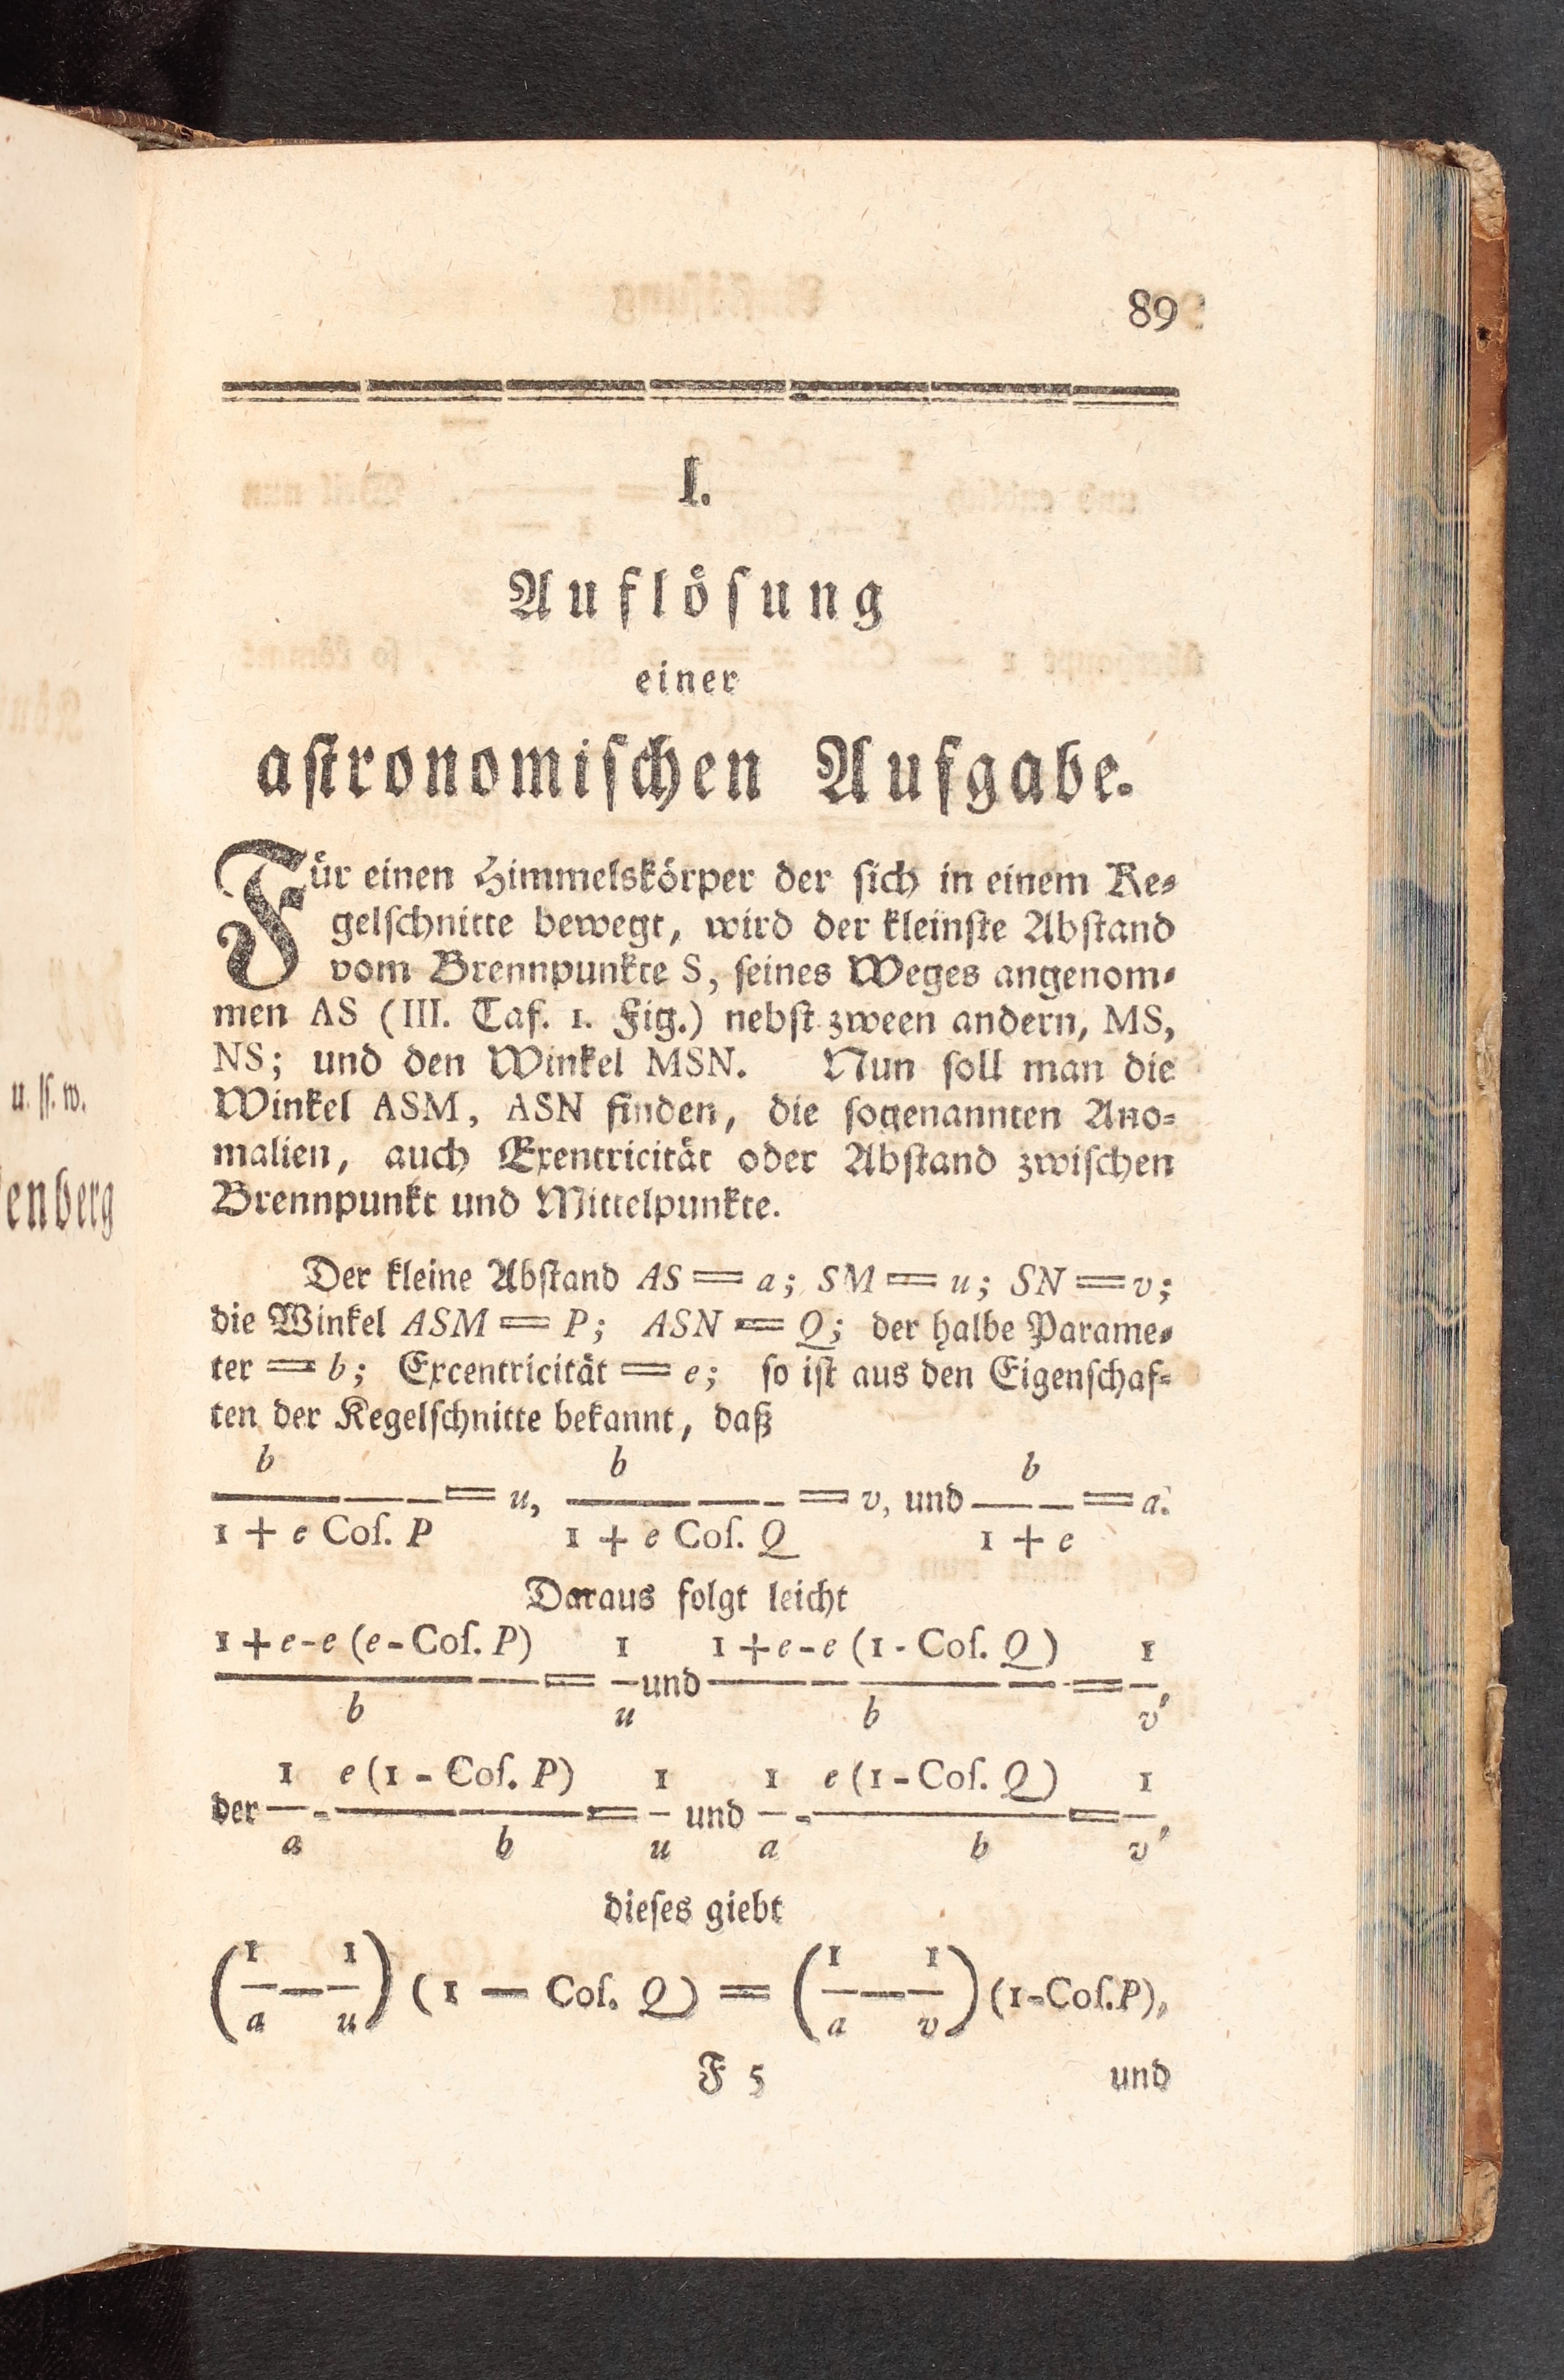 89
I.
Auflöſung
einer
aſtronomiſchen Aufgabe.
Für einen Himmelskörper der ſich in einem Ke-
gelſchnitte bewegt, wird der kleinſte Abſtand
vom Brennpunkte S, ſeines Weges angenom-
men AS (III. Taf. 1. Fig.) nebſt zween andern, MS,
NS; und den Winkel MSN. Nun ſoll man die
Winkel ASM, ASN finden, die ſogenannten Ano-
malien, auch Exentricität oder Abſtand zwiſchen
Brennpunkt und Mittelpunkte.
Der kleine Abſtand AS = a; SM = u; SN = v;
die Winkel ASM = P; ASN = Q; der halbe Parame-
ter = b; Excentricität = e; ſo iſt aus den Eigenſchaf-
ten der Kegelſchnitte bekannt, daß
b b b
——— = u, ——— = v, und —— = a.
1 + e Coſ. P 1 + e Coſ. Q 1 + e
Daraus folgt leicht
1 + e - e (e - Coſ. P) 1 1 + e - e (1 - Coſ. Q) 1
——— = — und ——— = —,
b u b v
1 e (1 - Coſ. P) 1 1 e (1 - Coſ. Q) 1
der — - ——— = — und — - ——— = —,
a b u a b v
dieſes giebt
(1 1) (1 1)
— — — (1 — Coſ. Q) = — — — (1 - Coſ. P),
a u a v
F 5 und
u. ſſ. w.
enberg